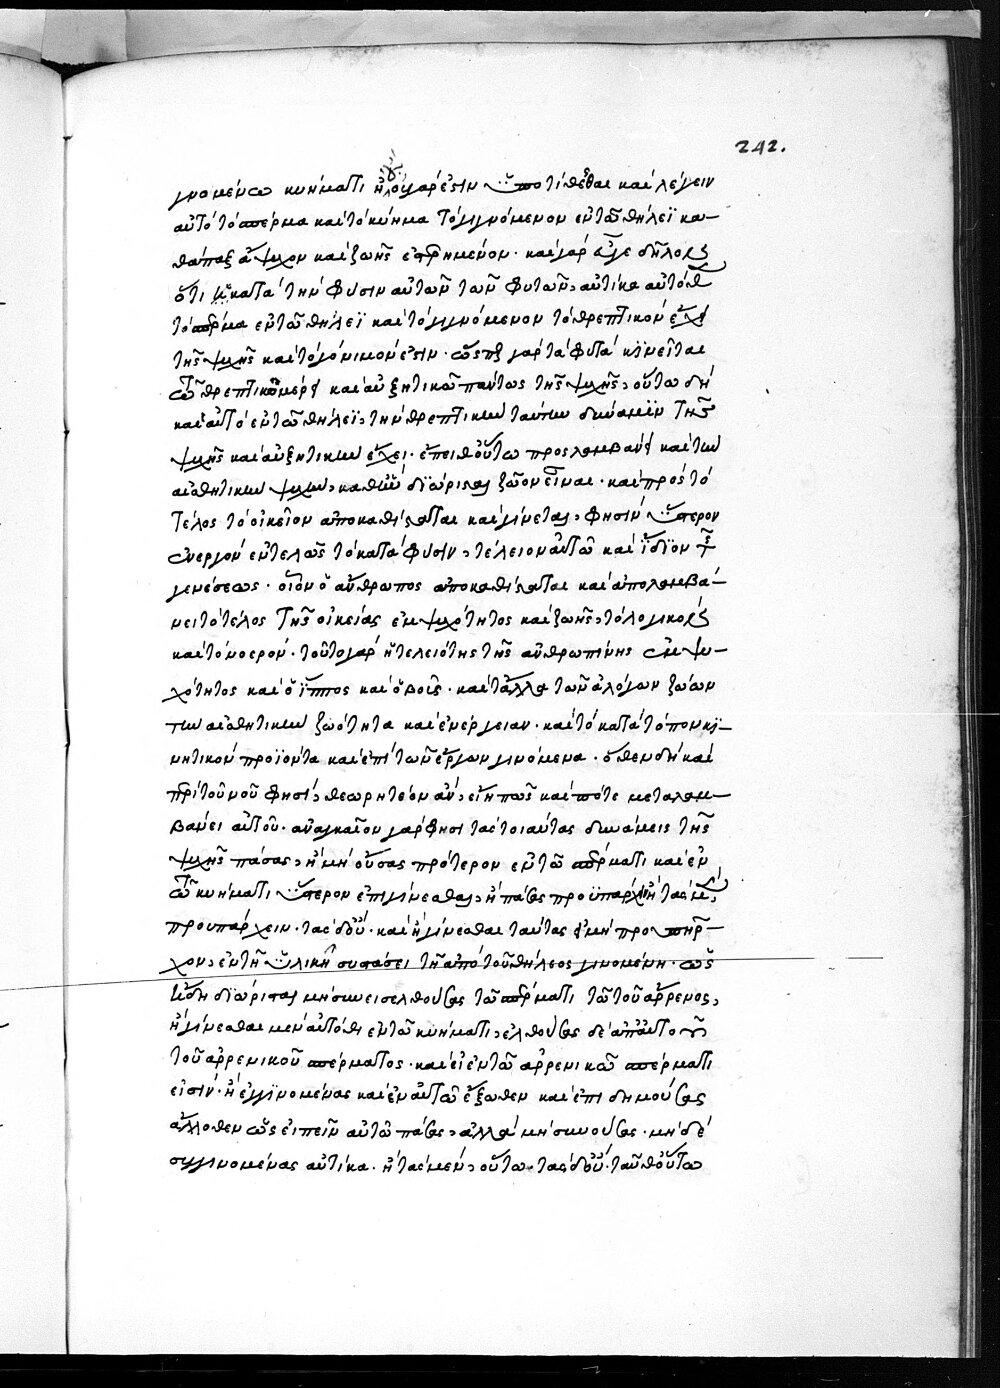 242.
γινομένω κυήματι ἄλογον γάρ ἐστιν ὑποτίθεσθαι καὶ λέγειν
αὐτὸ τὸ σπέρμα καὶ τὸ κύημα τὸ γιγνόμενον ἐν τῶ θήλεϊ κα-
θάπαξ ἄψυχον καὶ ζωῆς ἐστρημένον. καὶ γάρ δῆλον
ὅτι κατὰ τὴν φύσιν αὐτῶν τῶν φυτῶν, αὐτίκα αὐτόθι
τὸ σπέρμα ἐν τῶ θήλεϊ καὶ τὸ γιγνόμενον τὸ θρεπτικὸν ἔχει
τῆς ψυχῆς καὶ τὸ γόνιμόν ἐστιν. ὥσπερ γὰρ τὰ φυτὰ κινεῖται
τῶ θρεπτικῶ μέρει καὶ αὐξητικῶ πάντως τῆς ψυχῆς, οὕτω δὴ
καὶ αὐτὸ ἐν τῶ θήλεϊ, τὴν θρεπτικὴν ταύτην δύναμιν τῆς
ψυχῆς καὶ αὐξητικὴν ἔχει. ἔπειθ' οὕτω προσλαμβάνει καὶ τὴν
αἰσθητικὴν ψυχὴν, καθ' ἣν διώρισται ζῶον εἶναι. καὶ πρὸς τὸ
τέλος τὸ οἰκεῖον ἀποκαθίσταται καὶ γίνεται, φησὶν ὕστερον
ἐνεργὸν ἐντελῶς τὸ κατὰ φύσιν, τέλειον αὐτῶ καὶ ἴδιον τῆς
γενέσεως. οἷον ὁ ἄνθρωπος ἀποκαθίσταται καὶ ἀπολαμβά-
νει τὸ τέλος τῆς οἰκείας ἐμψυχότητος καὶ ζωῆς, τὸ λογικόν
καὶ τὸ νοερόν. τοῦτο γὰρ ἡ τελειότης τῆς ἀνθρωπίνης ἐμψυ-
χότητος καὶ ὁ ἵππος καὶ ὁ βοῦς. καὶ τἄλλα τῶν ἀλόγων ζώων
τὴν αἰσθητικὴν ζωότητα καὶ ἐνέργειαν. καὶ τὸ κατὰ τόπον κι-
νητικὸν προϊόντα καὶ ἐπὶ τῶν ἔργων γινόμενα. ὅθεν δὴ καὶ
περὶ τοῦ νοῦ φησὶ, θεωρητέον ἂν, εἴη πῶς καὶ πότε μεταλαμ-
βάνει αὐτοῦ. ἀναγκαῖον γάρ φησι τὰς τοιαύτας δυνάμεις τῆς
ψυχῆς πάσας, ἢ μὴ οὔσας πρότερον ἐν τῶ σπέρματι καὶ ἐν
τῶ κυήματι ὕστερον ἐπιγίνεσθαι, ἢ πάσας προϋπάρχειν ἢ τὰς μὲν,
προυπάρχειν. τὰς δ' οὔ. καὶ ἢ γίνεσθαι ταύτας εἰ μὴ προυπῆρ-
χον, ἐν τῆ ὑλικῆ συστάσει τῆ ἀπὸ τοῦ θήλεος γινομένη. ὡς
ἤδη διώρισται μὴ συνεισελθούσας τῶ σπέρματι τῶ τοῦ ἄρρενος,
ἢ γίνεσθαι μὲν αὐτόθι ἐν τῶ κυήματι, ἐλθούσας δὲ ἀπ' αὐτοῦ
τοῦ ἀρρενικοῦ σπέρματος. καὶ εἰ ἐν τῶ ἀρρενικῶ σπέρματι
εἰσίν. ἢ ἐγγινομένας καὶ ἐν αὐτῶ ἔξωθεν καὶ ἐπιδημούσας
ἄλλοθεν ὡς εἰπεῖν αὐτῶ πάσας, ἀλλὰ μὴ συνούσας. μὴ δὲ
συγγινομένας αὐτίκα. ἢ τὰς μὲν, οὕτω. τὰς δ' οὔ. ταῦθ' οὕτω